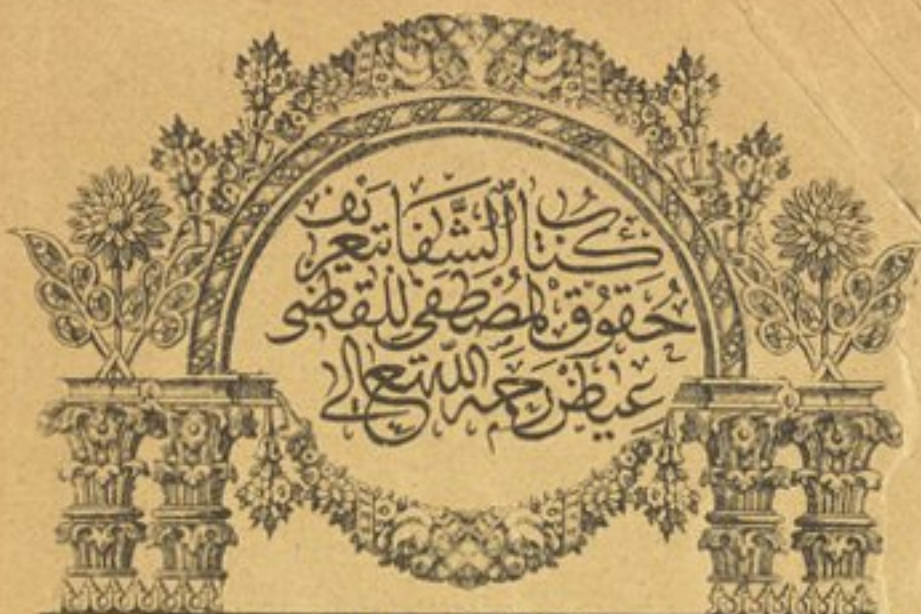 كتاب الشفا بتعريف
حقوق المصطفى للقاضى
عياض رحمه الله تعالى